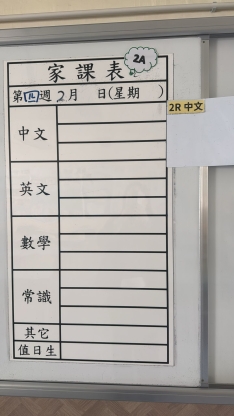 家課表
2A
第四週 2月 日(星期 )
2R 中文
中文
英文
數學
常識
其它
值日生